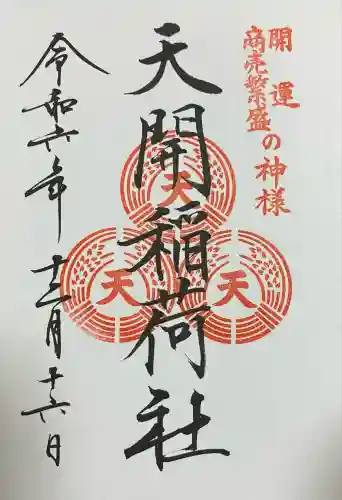 開運
商売繁盛の神様
天開稲荷社
天
天
天
令和六年十二月十六日